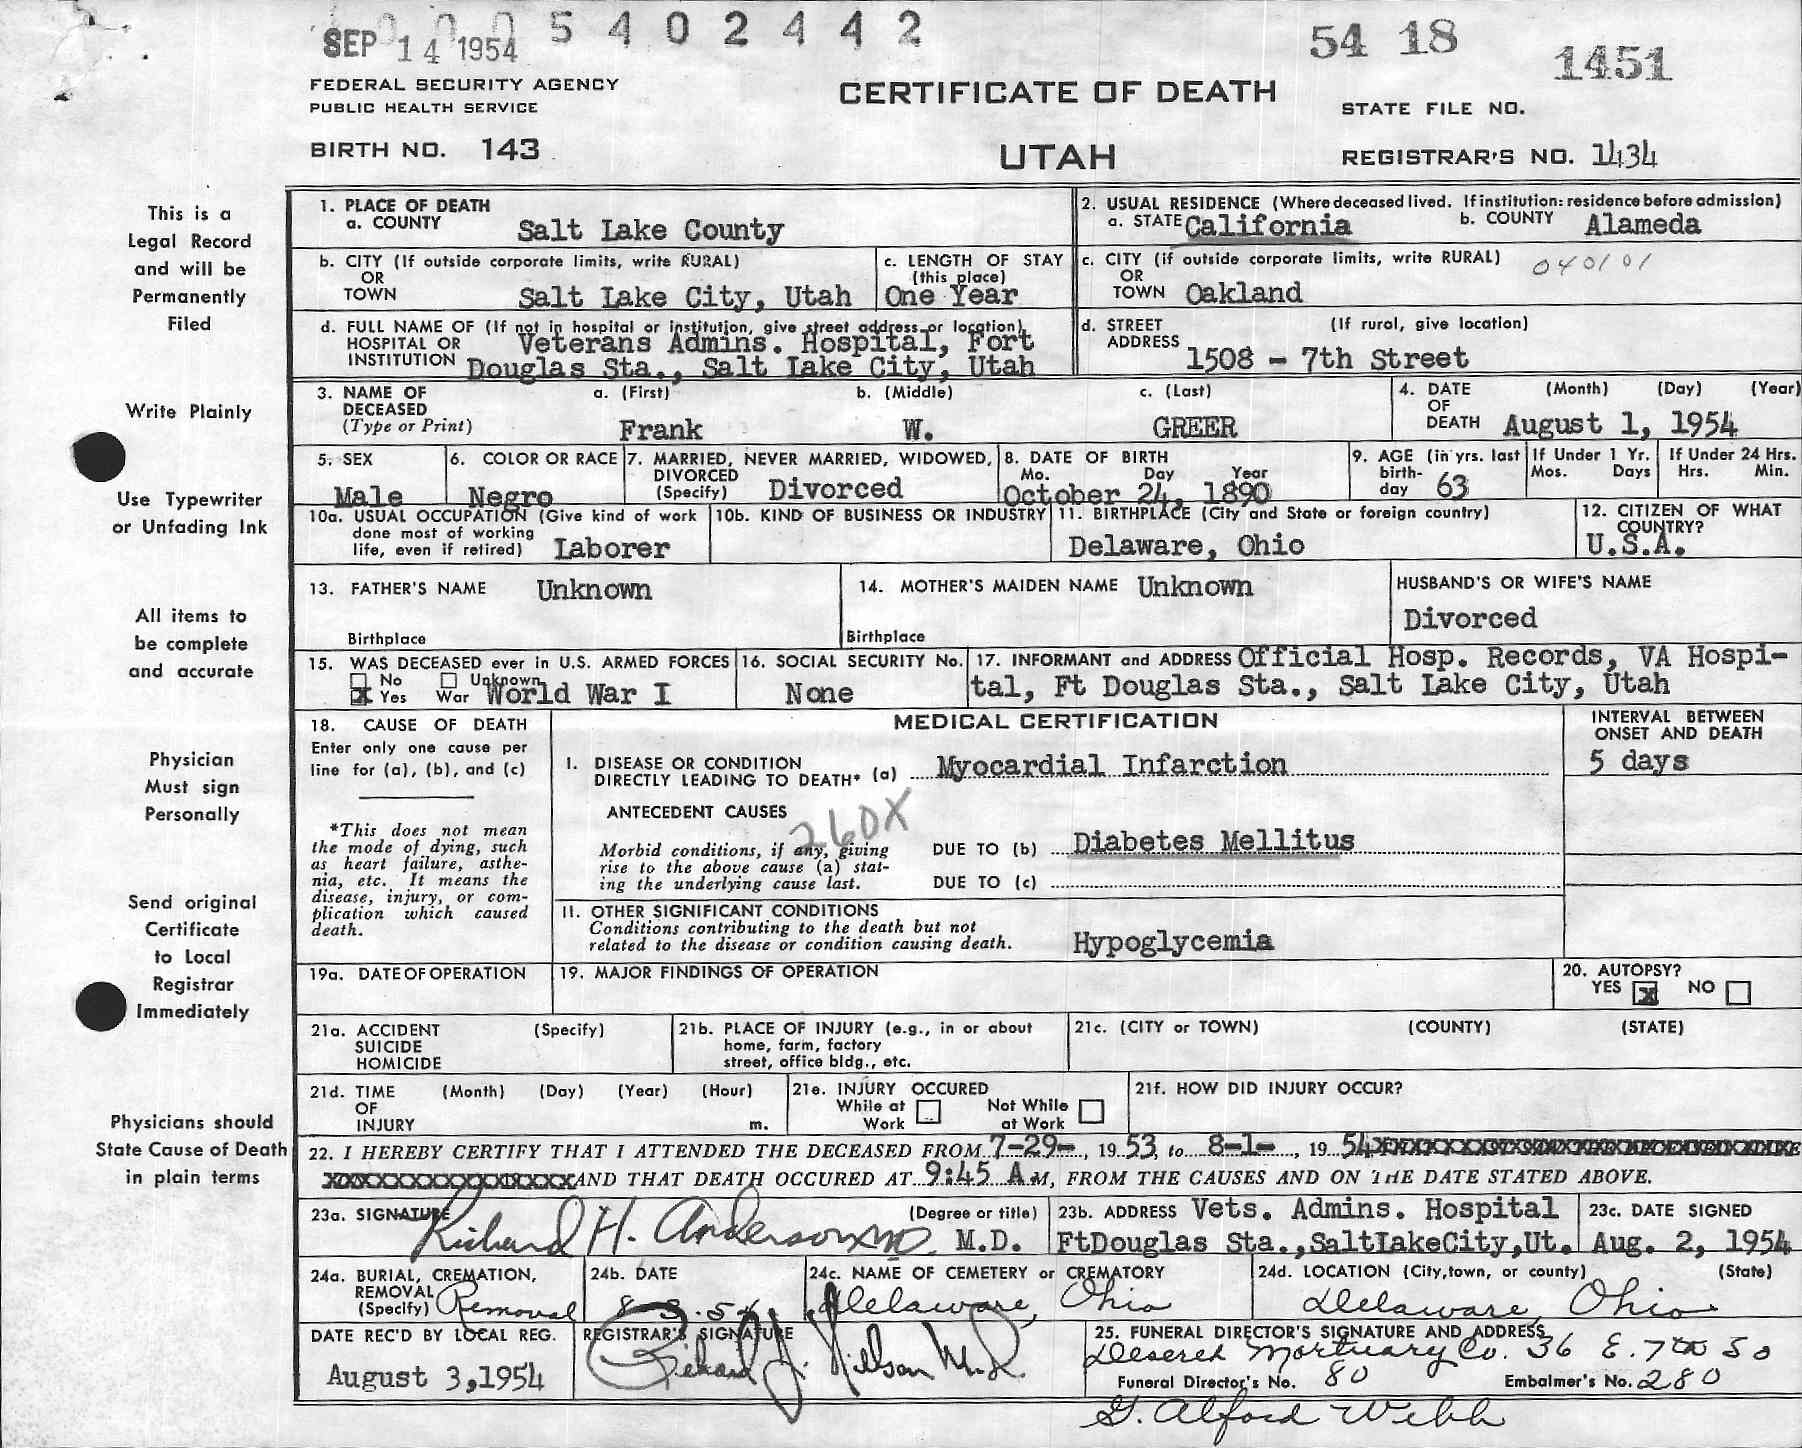 0 0 0 5 4 0 2 4 4 2
SEP 14 1954
54 18
1451
FEDERAL SECURITY AGENCY
PUBLIC HEALTH SERVICE
CERTIFICATE OF DEATH
STATE FILE NO.
BIRTH NO. 143
UTAH
REGISTRAR'S NO. 1434
This is a
Legal Record
and will be
Permanently
Filed
Write Plainly
Use Typewriter
or Unfading Ink
All items to
be complete
and accurate
Physician
Must sign
Personally
Send original
Certificate
to Local
Registrar
Immediately
Physicians should
State Cause of Death
in plain terms
1. PLACE OF DEATH
a. COUNTY Salt Lake County
2. USUAL RESIDENCE (Where deceased lived. If institution: residence before admission)
a. STATE California b. COUNTY Alameda
b. CITY (If outside corporate limits, write RURAL)
OR
TOWN Salt Lake City, Utah
c. LENGTH OF STAY
(this place)
One Year
c. CITY (if outside corporate limits, write RURAL) 040101
OR
TOWN Oakland
d. FULL NAME OF (If not in hospital or institution, give street address or location)
HOSPITAL OR Veterans Admins. Hospital, Fort
INSTITUTION Douglas Sta., Salt Lake City, Utah
d. STREET (If rural, give location)
ADDRESS 1508 - 7th Street
3. NAME OF a. (First) b. (Middle) c. (Last)
DECEASED
(Type or Print) Frank W. GREER
4. DATE (Month) (Day) (Year)
OF
DEATH August 1, 1954
5. SEX
Male
6. COLOR OR RACE
Negro
7. MARRIED, NEVER MARRIED, WIDOWED,
DIVORCED
(Specify) Divorced
8. DATE OF BIRTH
Mo. Day Year
October 24, 1890
9. AGE (in yrs. last
birth-
day 63
If Under 1 Yr.
Mos. Days
If Under 24 Hrs.
Hrs. Min.
10a. USUAL OCCUPATION (Give kind of work
done most of working
life, even if retired) Laborer
10b. KIND OF BUSINESS OR INDUSTRY
11. BIRTHPLACE (City and State or foreign country)
Delaware, Ohio
12. CITIZEN OF WHAT
COUNTRY?
U.S.A.
13. FATHER'S NAME Unknown
Birthplace
14. MOTHER'S MAIDEN NAME Unknown
Birthplace
HUSBAND'S OR WIFE'S NAME
Divorced
15. WAS DECEASED ever in U.S. ARMED FORCES
No Unknown
X Yes War World War I
16. SOCIAL SECURITY No.
None
17. INFORMANT and ADDRESS Official Hosp. Records, VA Hospi-
tal, Ft Douglas Sta., Salt Lake City, Utah
18. CAUSE OF DEATH
Enter only one cause per
line for (a), (b), and (c)
*This does not mean
the mode of dying, such
as heart failure, asthe-
nia, etc. It means the
disease, injury, or com-
plication which caused
death.
MEDICAL CERTIFICATION
INTERVAL BETWEEN
ONSET AND DEATH
I. DISEASE OR CONDITION
DIRECTLY LEADING TO DEATH* (a) Myocardial Infarction
5 days
ANTECEDENT CAUSES
260X
Morbid conditions, if any, giving
rise to the above cause (a) stat-
ing the underlying cause last.
DUE TO (b) Diabetes Mellitus
DUE TO (c)
II. OTHER SIGNIFICANT CONDITIONS
Conditions contributing to the death but not
related to the disease or condition causing death.
Hypoglycemia
19a. DATE OF OPERATION
19. MAJOR FINDINGS OF OPERATION
20. AUTOPSY?
YES X NO
21a. ACCIDENT (Specify)
SUICIDE
HOMICIDE
21b. PLACE OF INJURY (e.g., in or about
home, farm, factory
street, office bldg., etc.
21c. (CITY or TOWN) (COUNTY) (STATE)
21d. TIME (Month) (Day) (Year) (Hour)
OF
INJURY m.
21e. INJURY OCCURED
While at Not While
Work at Work
21f. HOW DID INJURY OCCUR?
22. I HEREBY CERTIFY THAT I ATTENDED THE DECEASED FROM 7-29-, 1953, to 8-1-, 1954
AND THAT DEATH OCCURED AT 9:45 A.M, FROM THE CAUSES AND ON THE DATE STATED ABOVE.
23a. SIGNATURE (Degree or title)
Richard H. Anderson MD M.D.
23b. ADDRESS Vets. Admins. Hospital
FtDouglas Sta.,SaltLakeCity,Ut.
23c. DATE SIGNED
Aug. 2, 1954
24a. BURIAL, CREMATION,
REMOVAL
(Specify) Removal
24b. DATE
8 3.54
24c. NAME OF CEMETERY or CREMATORY
Delaware, Ohio
24d. LOCATION (City, town, or county) (State)
Delaware, Ohio
DATE REC'D BY LOCAL REG.
August 3,1954
REGISTRAR'S SIGNATURE
Richard J. Nillson M.D.
25. FUNERAL DIRECTOR'S SIGNATURE AND ADDRESS
Deseret Mortuary Co. 36 E. 7th So
Funeral Director's No. 80 Embalmer's No. 280
G. Alford Webb